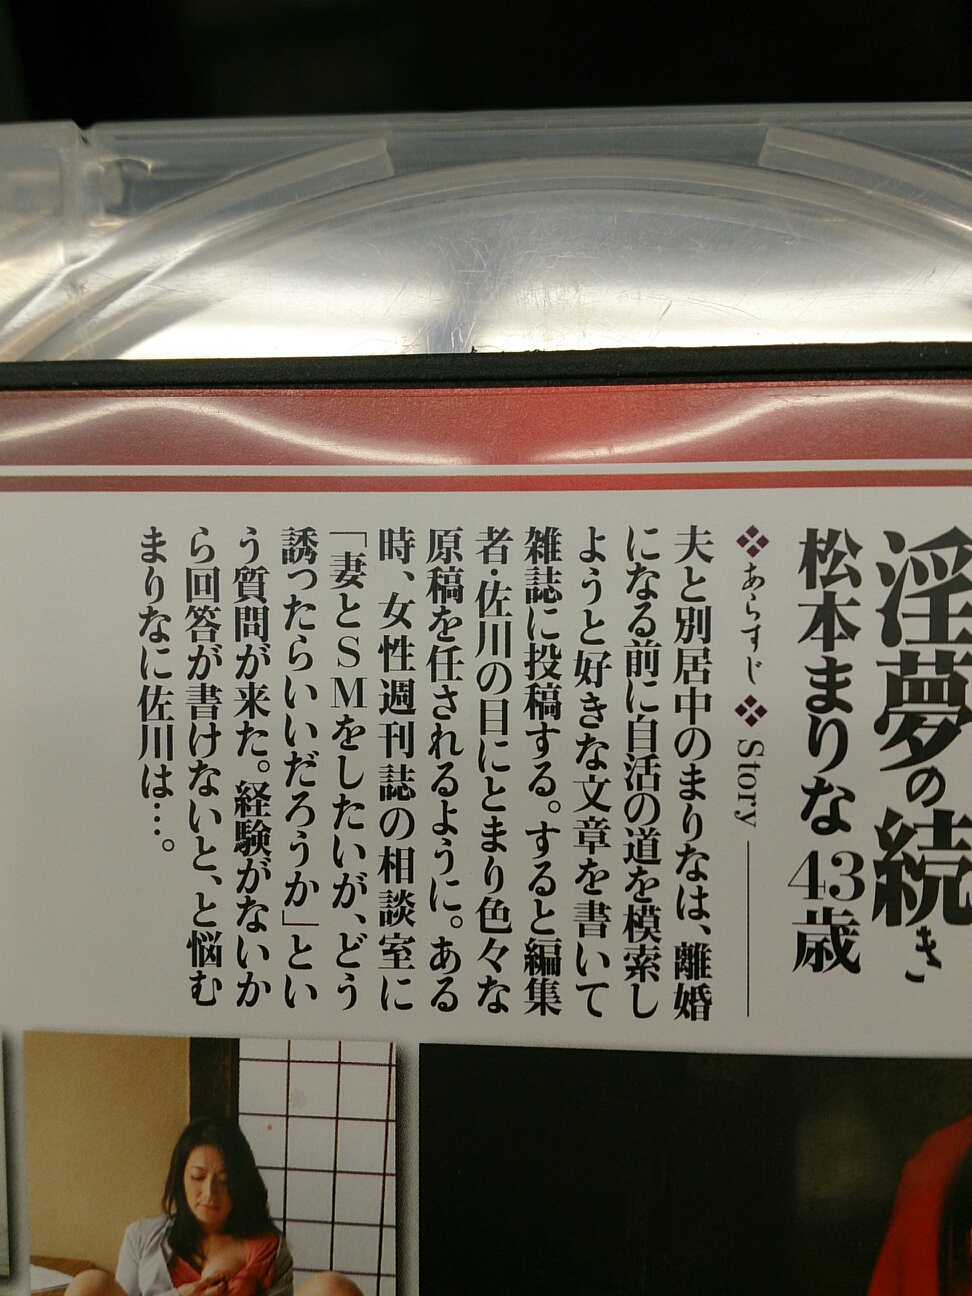 淫夢の続き
松本まりな 43歳
あらすじ Story
夫と別居中のまりなは、離婚
になる前に自活の道を模索し
ようと好きな文章を書いて
雑誌に投稿する。すると編集
者・佐川の目にとまり色々な
原稿を任されるように。ある
時、女性週刊誌の相談室に
「妻とSMをしたいが、どう
誘ったらいいだろうか」とい
う質問が来た。経験がないか
ら回答が書けないと、と悩む
まりなに佐川は…。